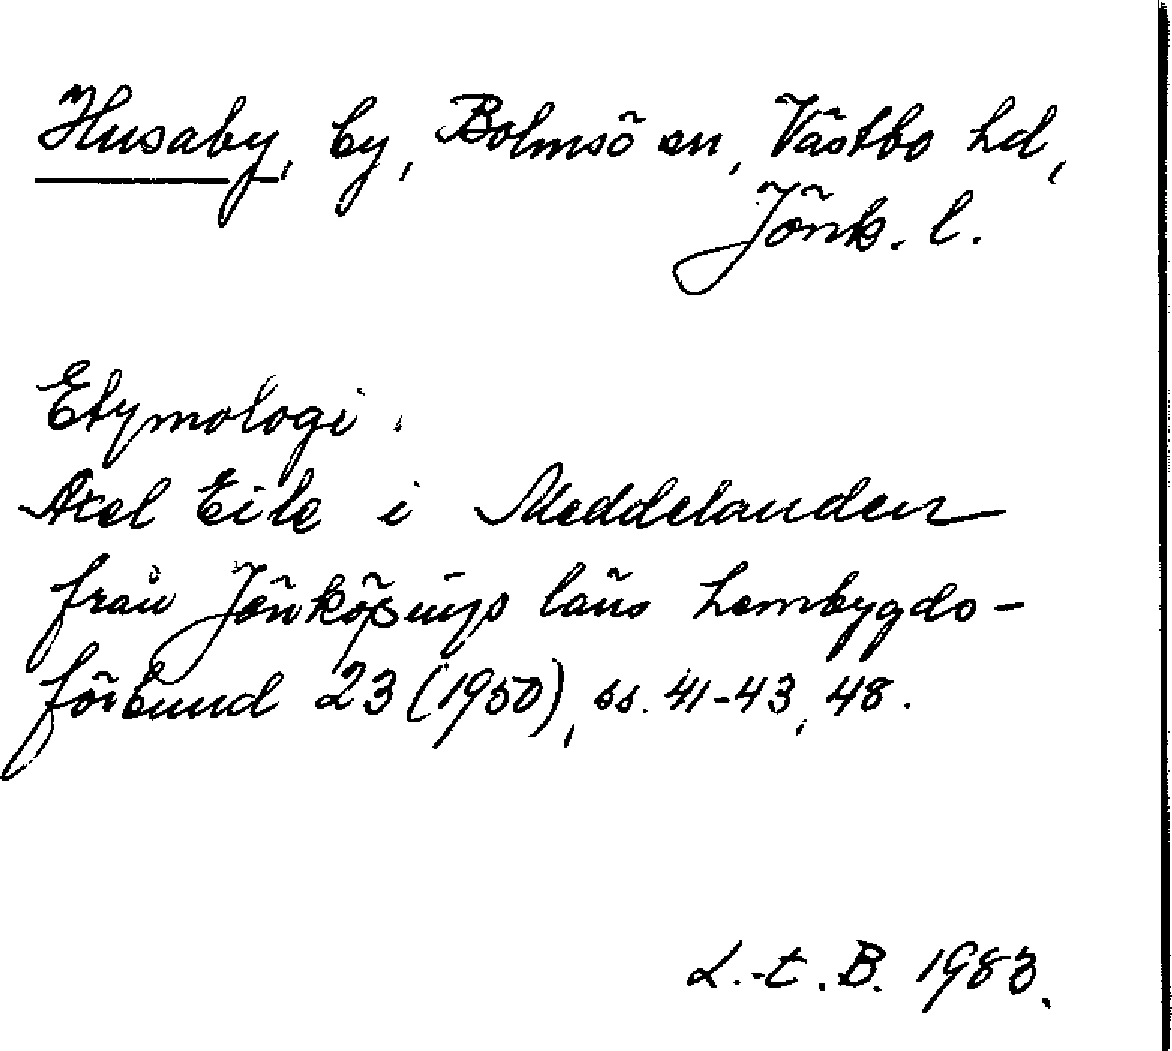 Husaby, by, Bolmsö sn, Västbo hd,
Jönk. l.
Etymologi.
Axel Eile i Meddelanden
från Jönköpings läns hembygds-
förbund 23 (1950), ss. 41-43, 48.
L.-E. B. 1983.